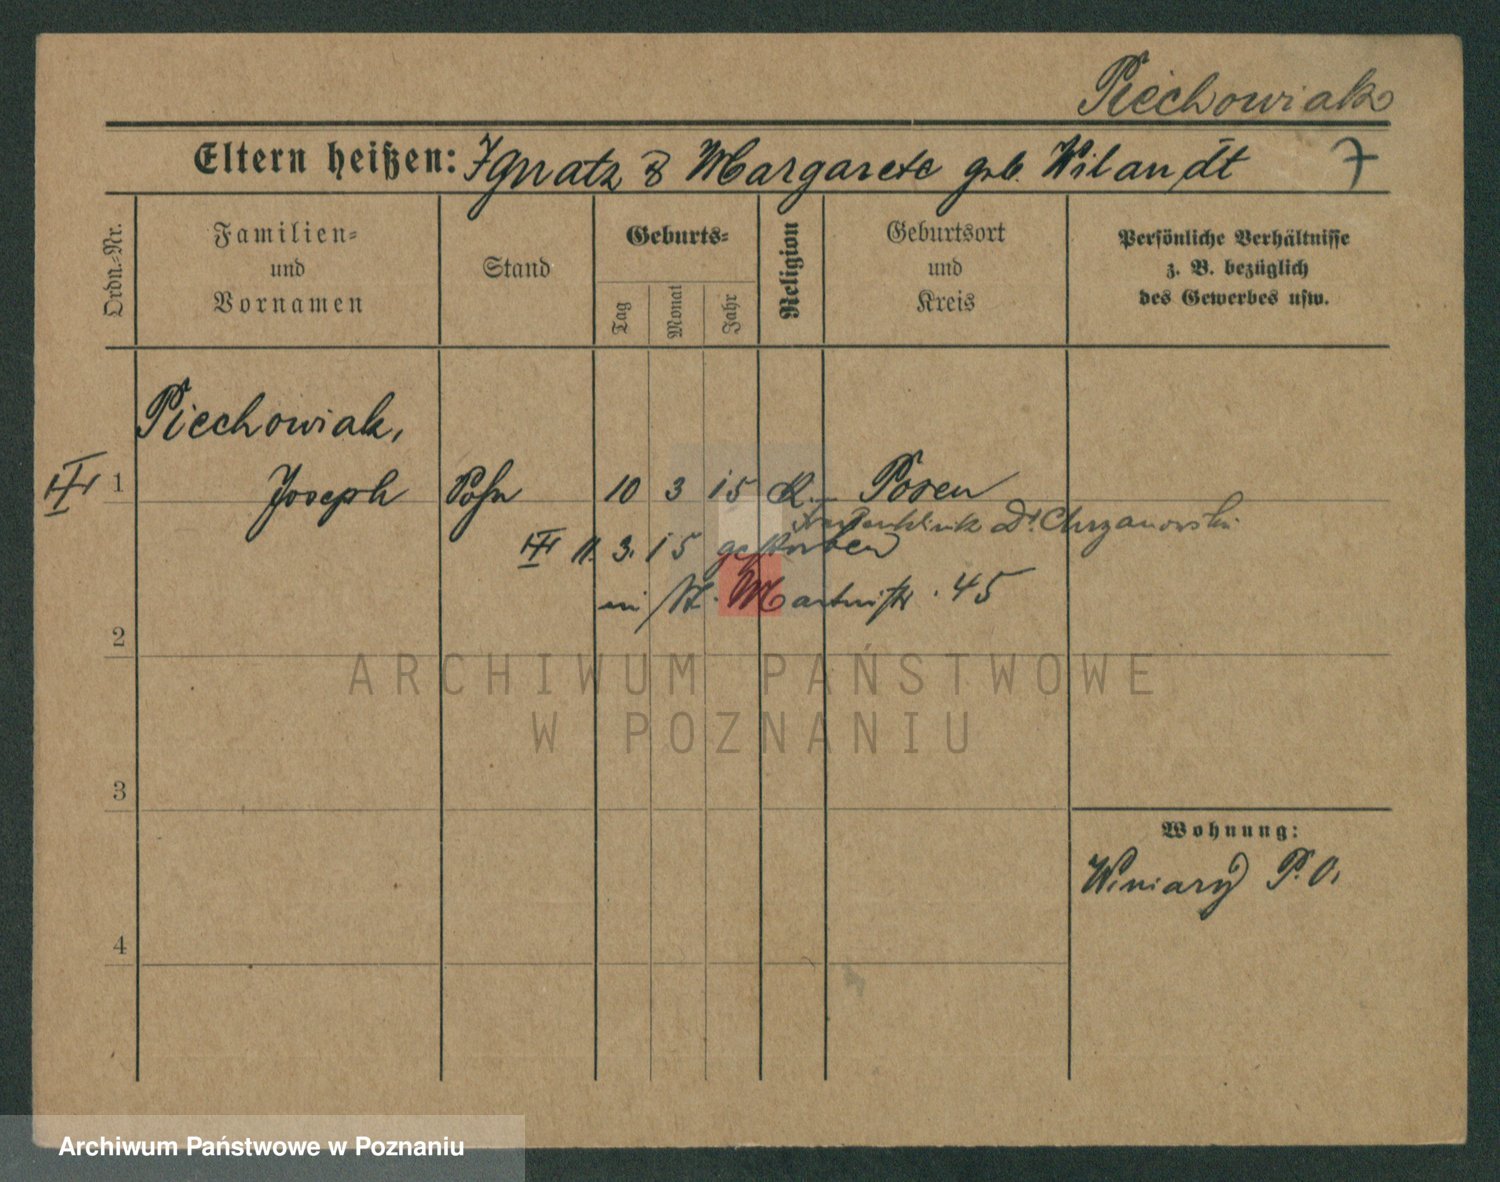 Piechowiak
Eltern heißen: Ignatz & Margarete geb. Wilandt 7
Ordn.-Nr.
Familien-
und
Vornamen
Stand
Geburts-
Tag
Monat
Jahr
Religion
Geburtsort
und
Kreis
Persönliche Verhältnisse
z. B. bezüglich
des Gewerbes usw.
Piechowiak,
III 1 Joseph Sohn 10 3 15 k. Posen
Dr. Chrzanowski
III 11. 3. 15 gestorben
in St. Martinstr. 45
2
ARCHIWUM PAŃSTWOWE
W POZNANIU
3
Wohnung:
Winiary P. O.
4
Archiwum Państwowe w Poznaniu